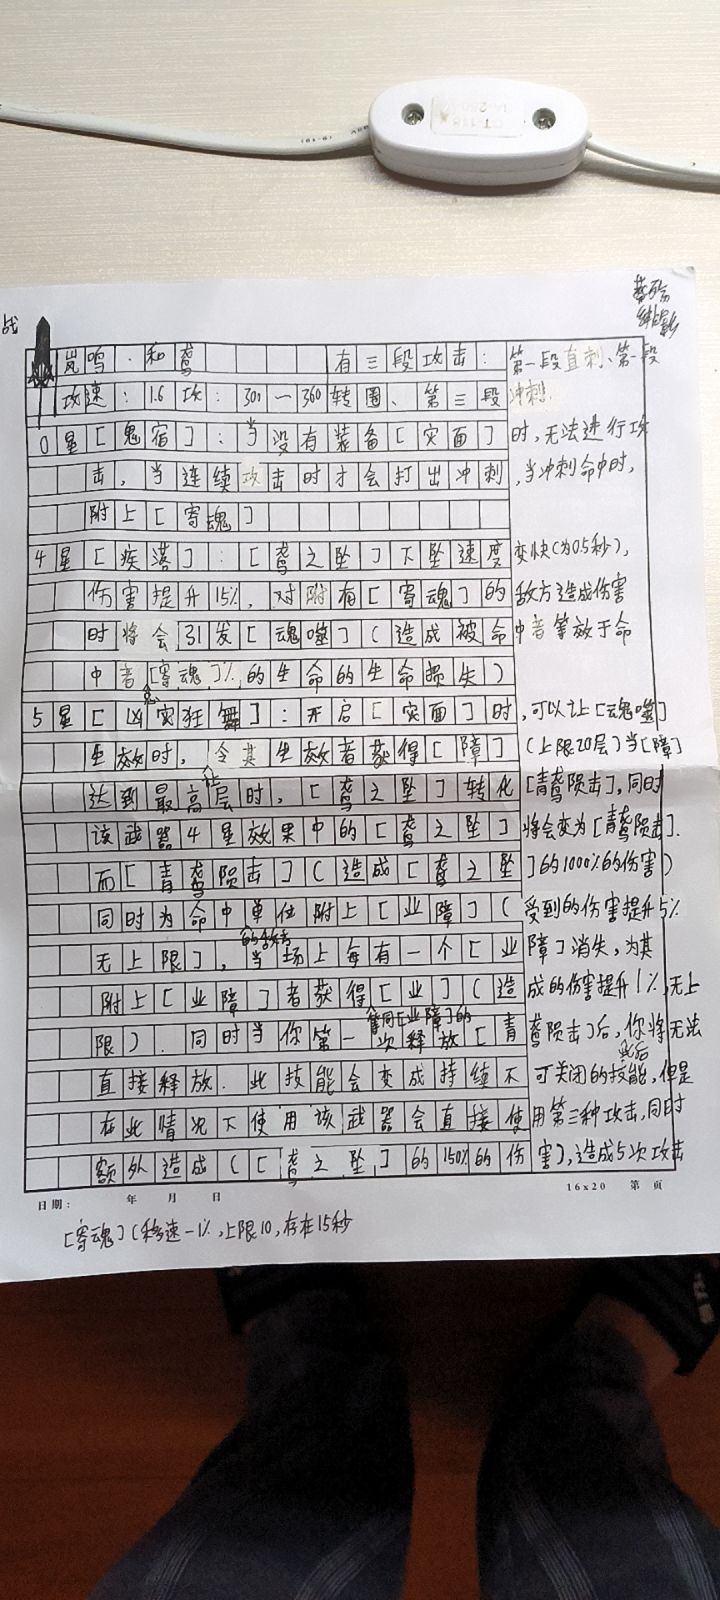 战
岚鸣·和鸢 有三段攻击: 第一段直刺、第一段
攻速:1.6 攻:301—360转圈、第三段冲刺.
0星[鬼宿]:当没有装备[灾面]时,无法进行攻
击,当连续攻击时才会打出冲刺,当冲刺命中时,
附上[寄魂]
4星[疾落]:[鸢之坠]下坠速度变快(为0.5秒),
伤害提升15%,对附有[寄魂]的敌方造成伤害
时将会引发[魂噬](造成被命中者等效于命
中者[寄魂]%的生命的生命损失)
5星[凶灾狂舞]:开启[灾面]时,可以让[魂噬]
生效时,令其生效者获得[障](上限20层)当[障]
达到最高层时,让[鸢之坠]转化[青鸢陨击],同时
该武器4星效果中的[鸢之坠]将会变为[青鸢陨击].
而[青鸢陨击](造成[鸢之坠]的1000%的伤害)
同时为命中单位附上[业障](受到的伤害提升5%
无上限],当场上每有一个[业障]的敌方消失,为其
附上[业障]者获得[业](造成的伤害提升1%,无上
限).同时当你第一次释放[青鸢陨击]后,你将无法
直接释放.此技能会变成持续不可关闭的技能,但是
在此情况下使用该武器会直接使用第三种攻击,同时
额外造成([鸢之坠]的150%的伤害),造成5次攻击
日期: 年 月 日 16x20 第 页
[寄魂](移速-1%,上限10,存在15秒